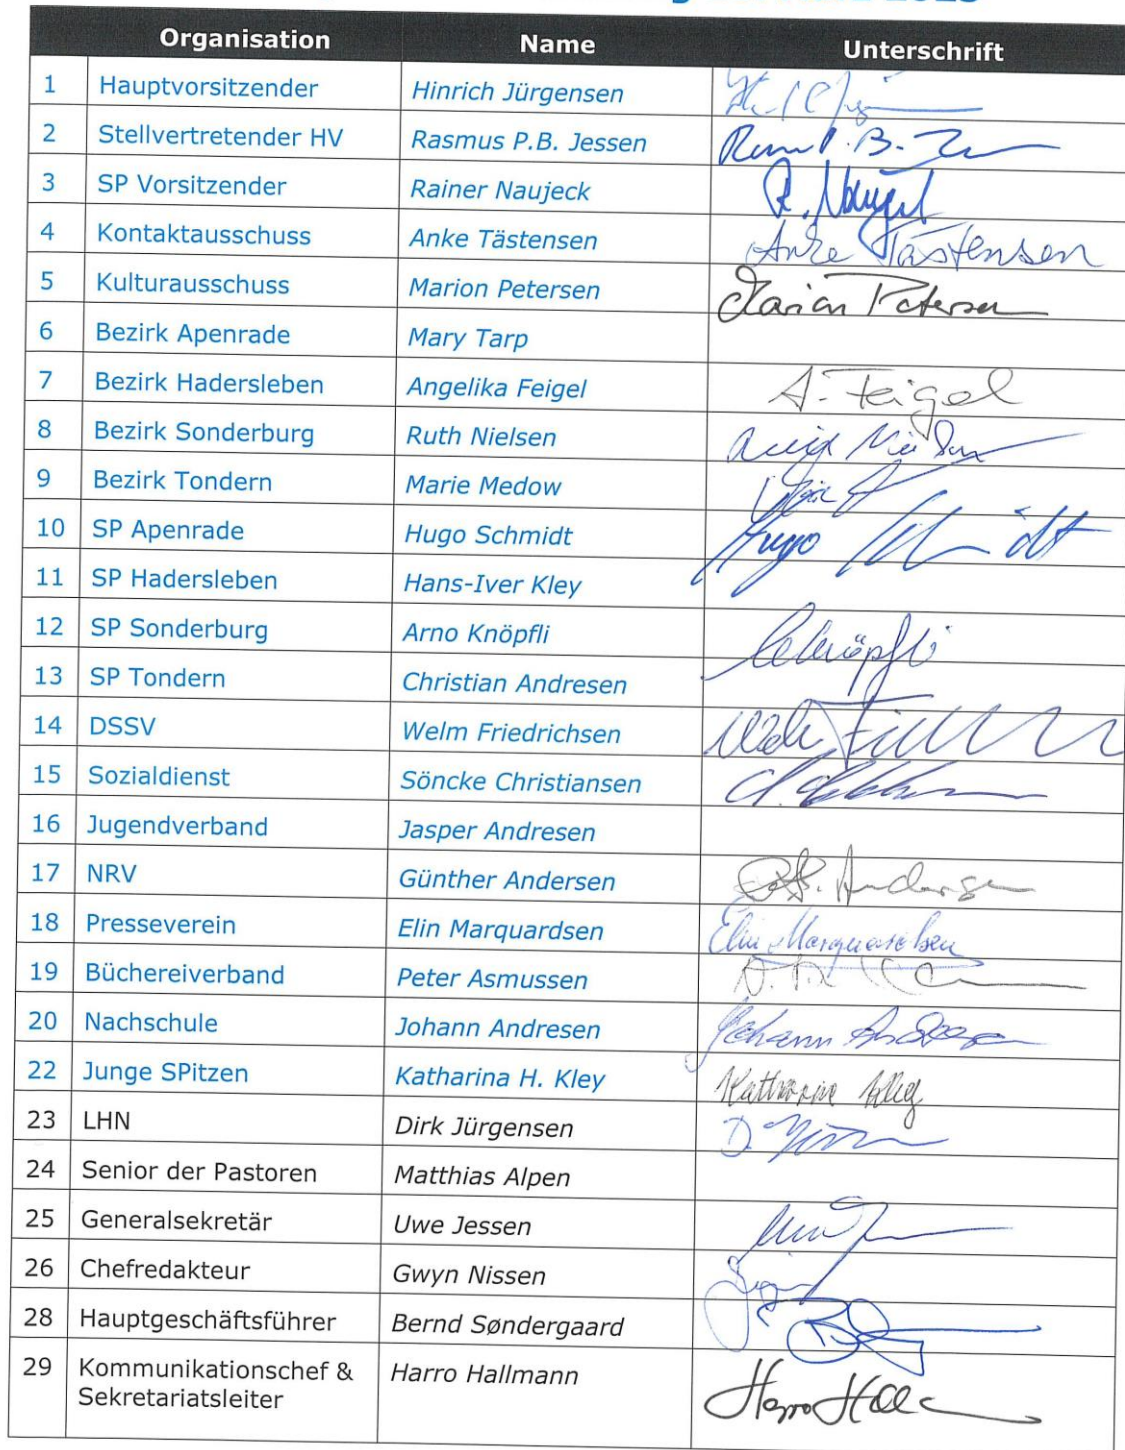 2023
Organisation Name Unterschrift
1 Hauptvorsitzender Hinrich Jürgensen
2 Stellvertretender HV Rasmus P.B. Jessen
3 SP Vorsitzender Rainer Naujeck
4 Kontaktausschuss Anke Tästensen Anke Tästensen
5 Kulturausschuss Marion Petersen Marion Petersen
6 Bezirk Apenrade Mary Tarp
7 Bezirk Hadersleben Angelika Feigel A. Feigel
8 Bezirk Sonderburg Ruth Nielsen
9 Bezirk Tondern Marie Medow
10 SP Apenrade Hugo Schmidt Hugo Schmidt
11 SP Hadersleben Hans-Iver Kley
12 SP Sonderburg Arno Knöpfli
13 SP Tondern Christian Andresen
14 DSSV Welm Friedrichsen
15 Sozialdienst Söncke Christiansen
16 Jugendverband Jasper Andresen
17 NRV Günther Andersen Andersen
18 Presseverein Elin Marquardsen Elin Marquardsen
19 Büchereiverband Peter Asmussen
20 Nachschule Johann Andresen Johann Andresen
22 Junge SPitzen Katharina H. Kley Katharina Kley
23 LHN Dirk Jürgensen
24 Senior der Pastoren Matthias Alpen
25 Generalsekretär Uwe Jessen
26 Chefredakteur Gwyn Nissen
28 Hauptgeschäftsführer Bernd Søndergaard
29 Kommunikationschef & Harro Hallmann
Sekretariatsleiter